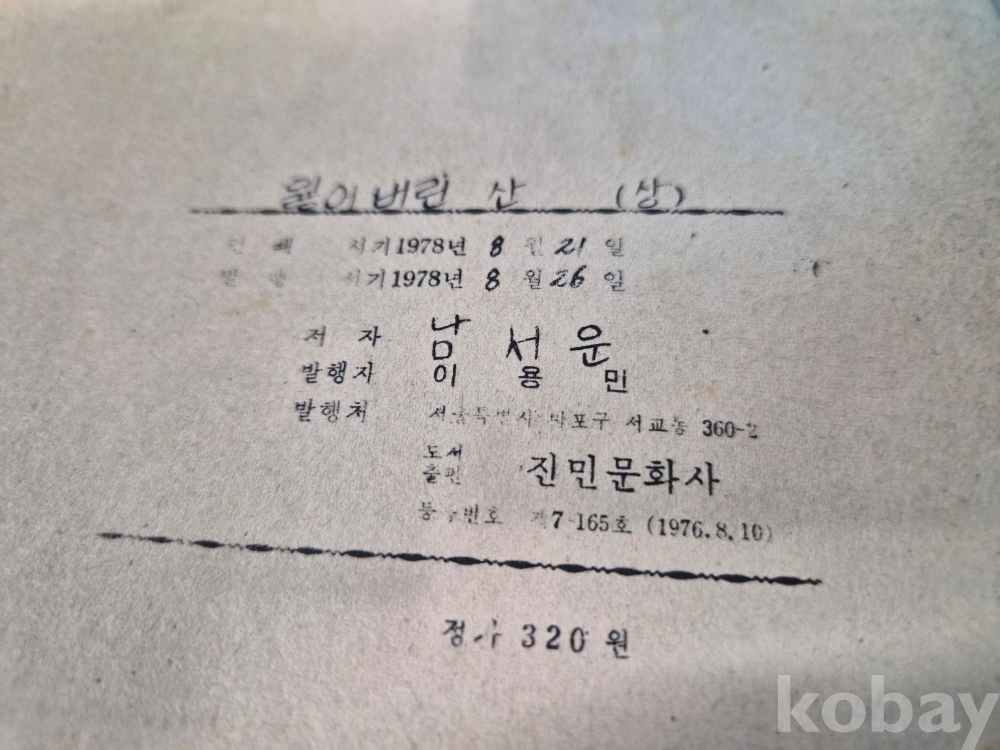 잃어버린 산 (상)
인쇄 서기 1978년 8월 21일
발행 서기 1978년 8월 26일
저자 남 서 운
발행자 이 용 민
발행처 서울특별시 마포구 서교동 360-2
도서
출판 진민문화사
등록번호 제7-165호 (1976.8.10)
정가 320원
kobay